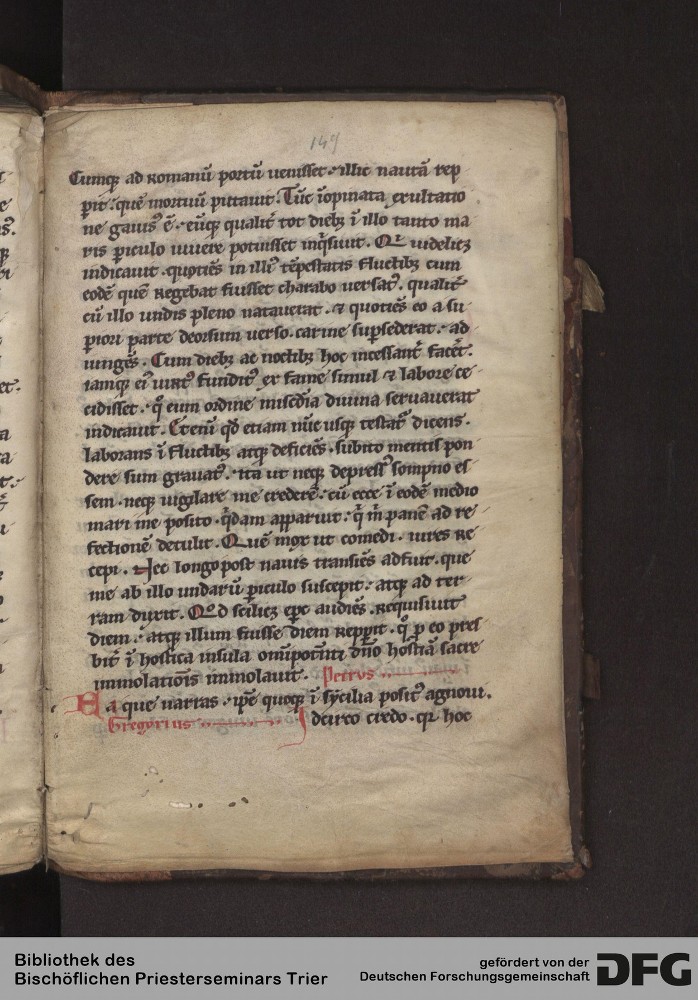 149
Cumq; ad romanū portū uenisset · illic nautā rep
ꝑit · quē mortuū putauit. Tūc īopinata exultatio
ne gauisꝰ ē · eūq; qualit̄ tot diebꝫ ī illo tanto ma
ris ꝑiculo uiuere potuisset inq̇siuit. Qi uidelicꝫ
indicauit · quotiēs in illiꝰ tēpestatis fluctibꝫ cum
eodē quē regebat fuisset charabo uersatꝰ. qualit̄
cū illo undis pleno natauerat · ⁊ quotiēs eo a su
ꝑiori parte deorsum uerso · carine suꝑsederat · ad
iungēs. Cum diebꝫ ac noctibꝫ hoc incessant̄ facēt̄.
iamq; eiꝰ uirtꝰ funditꝰ ex fame simul ⁊ labore ce
cidisset · q̊ eum ordine misc̄dia diuina seruauerat
indicauit. Etenī qd̄ etiam nūc usq; testat̄ dicens.
laborans ī fluctibꝫ atq; deficiēs · subito mentis pon
dere sum grauatꝰ · ita ut neq; depressꝰ sompno es
sem · neq; uigilare me crederē · cū ecce ī eodē medio
mari me posito · q̇dam apparuit · q̇ m̄ panē ad re
fectionē detulit. Quē mox ut comedi · uires re
cepi. Nec longo post nauis transiēs adfuit · que
me ab illo undarū ꝑiculo suscepit · atq; ad ter
ram duxit. Qod scilicꝫ ep̄c audiēs. requisiuit
diem · atq; illum fuisse diem repꝑit · q̊ p eo pres
bit̄ ī hostica insula om̄ipotēti dn̄o hostiā sacre
immolatiōis immolauit. Petrus
Ea que narras · ip̄e quoq; ī sycilia positꝰ agnoui.
Gregorius Idcirco credo · qꝛ hoc
Bibliothek des
Bischöflichen Priesterseminars Trier
gefördert von der
Deutschen Forschungsgemeinschaft
DFG